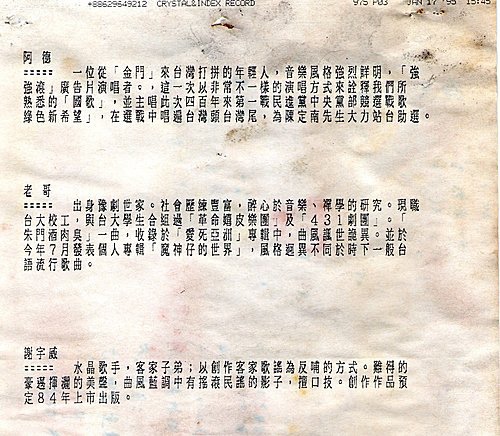 +88629649212 CRYSTAL&INDEX RECORD 975 P03 JAN 17 '95 15:45
阿德
===== 一位從「金門」來台灣打拼的年輕人，音樂風格強烈鮮明，「強
強滾」廣告片演唱者。，這一次以非常不一樣的演唱方式來詮釋我們所
熟悉的「國歌」，並主唱此次四百年來第一戰民進黨中央黨部競選戰歌
綠色新希望」，在選戰中唱遍台灣頭台灣尾，為陳定南先生大力站台助選。
老哥
===== 出身豫劇世家。社會歷練豐富，醉心於音樂、禪學的研究。現職
台大校工，與台大學生合組過「革命嬉皮樂團」及「431劇團」。「
朱門酒肉臭」一曲，收錄於「愛死亞洲」專輯中，曲風謳世詭異。並於
今年7月發表個人專輯「魔神仔的世界」，風格迥異不同於時下一般台
語流行歌曲。
謝宇威
===== 水晶歌手，客家子弟；以創作客家歌謠為反哺的方式。難得的
豪邁揮灑的美聲，曲風藍調中有搖滾民謠的影子，擅口技。創作作品預
定84年上市出版。